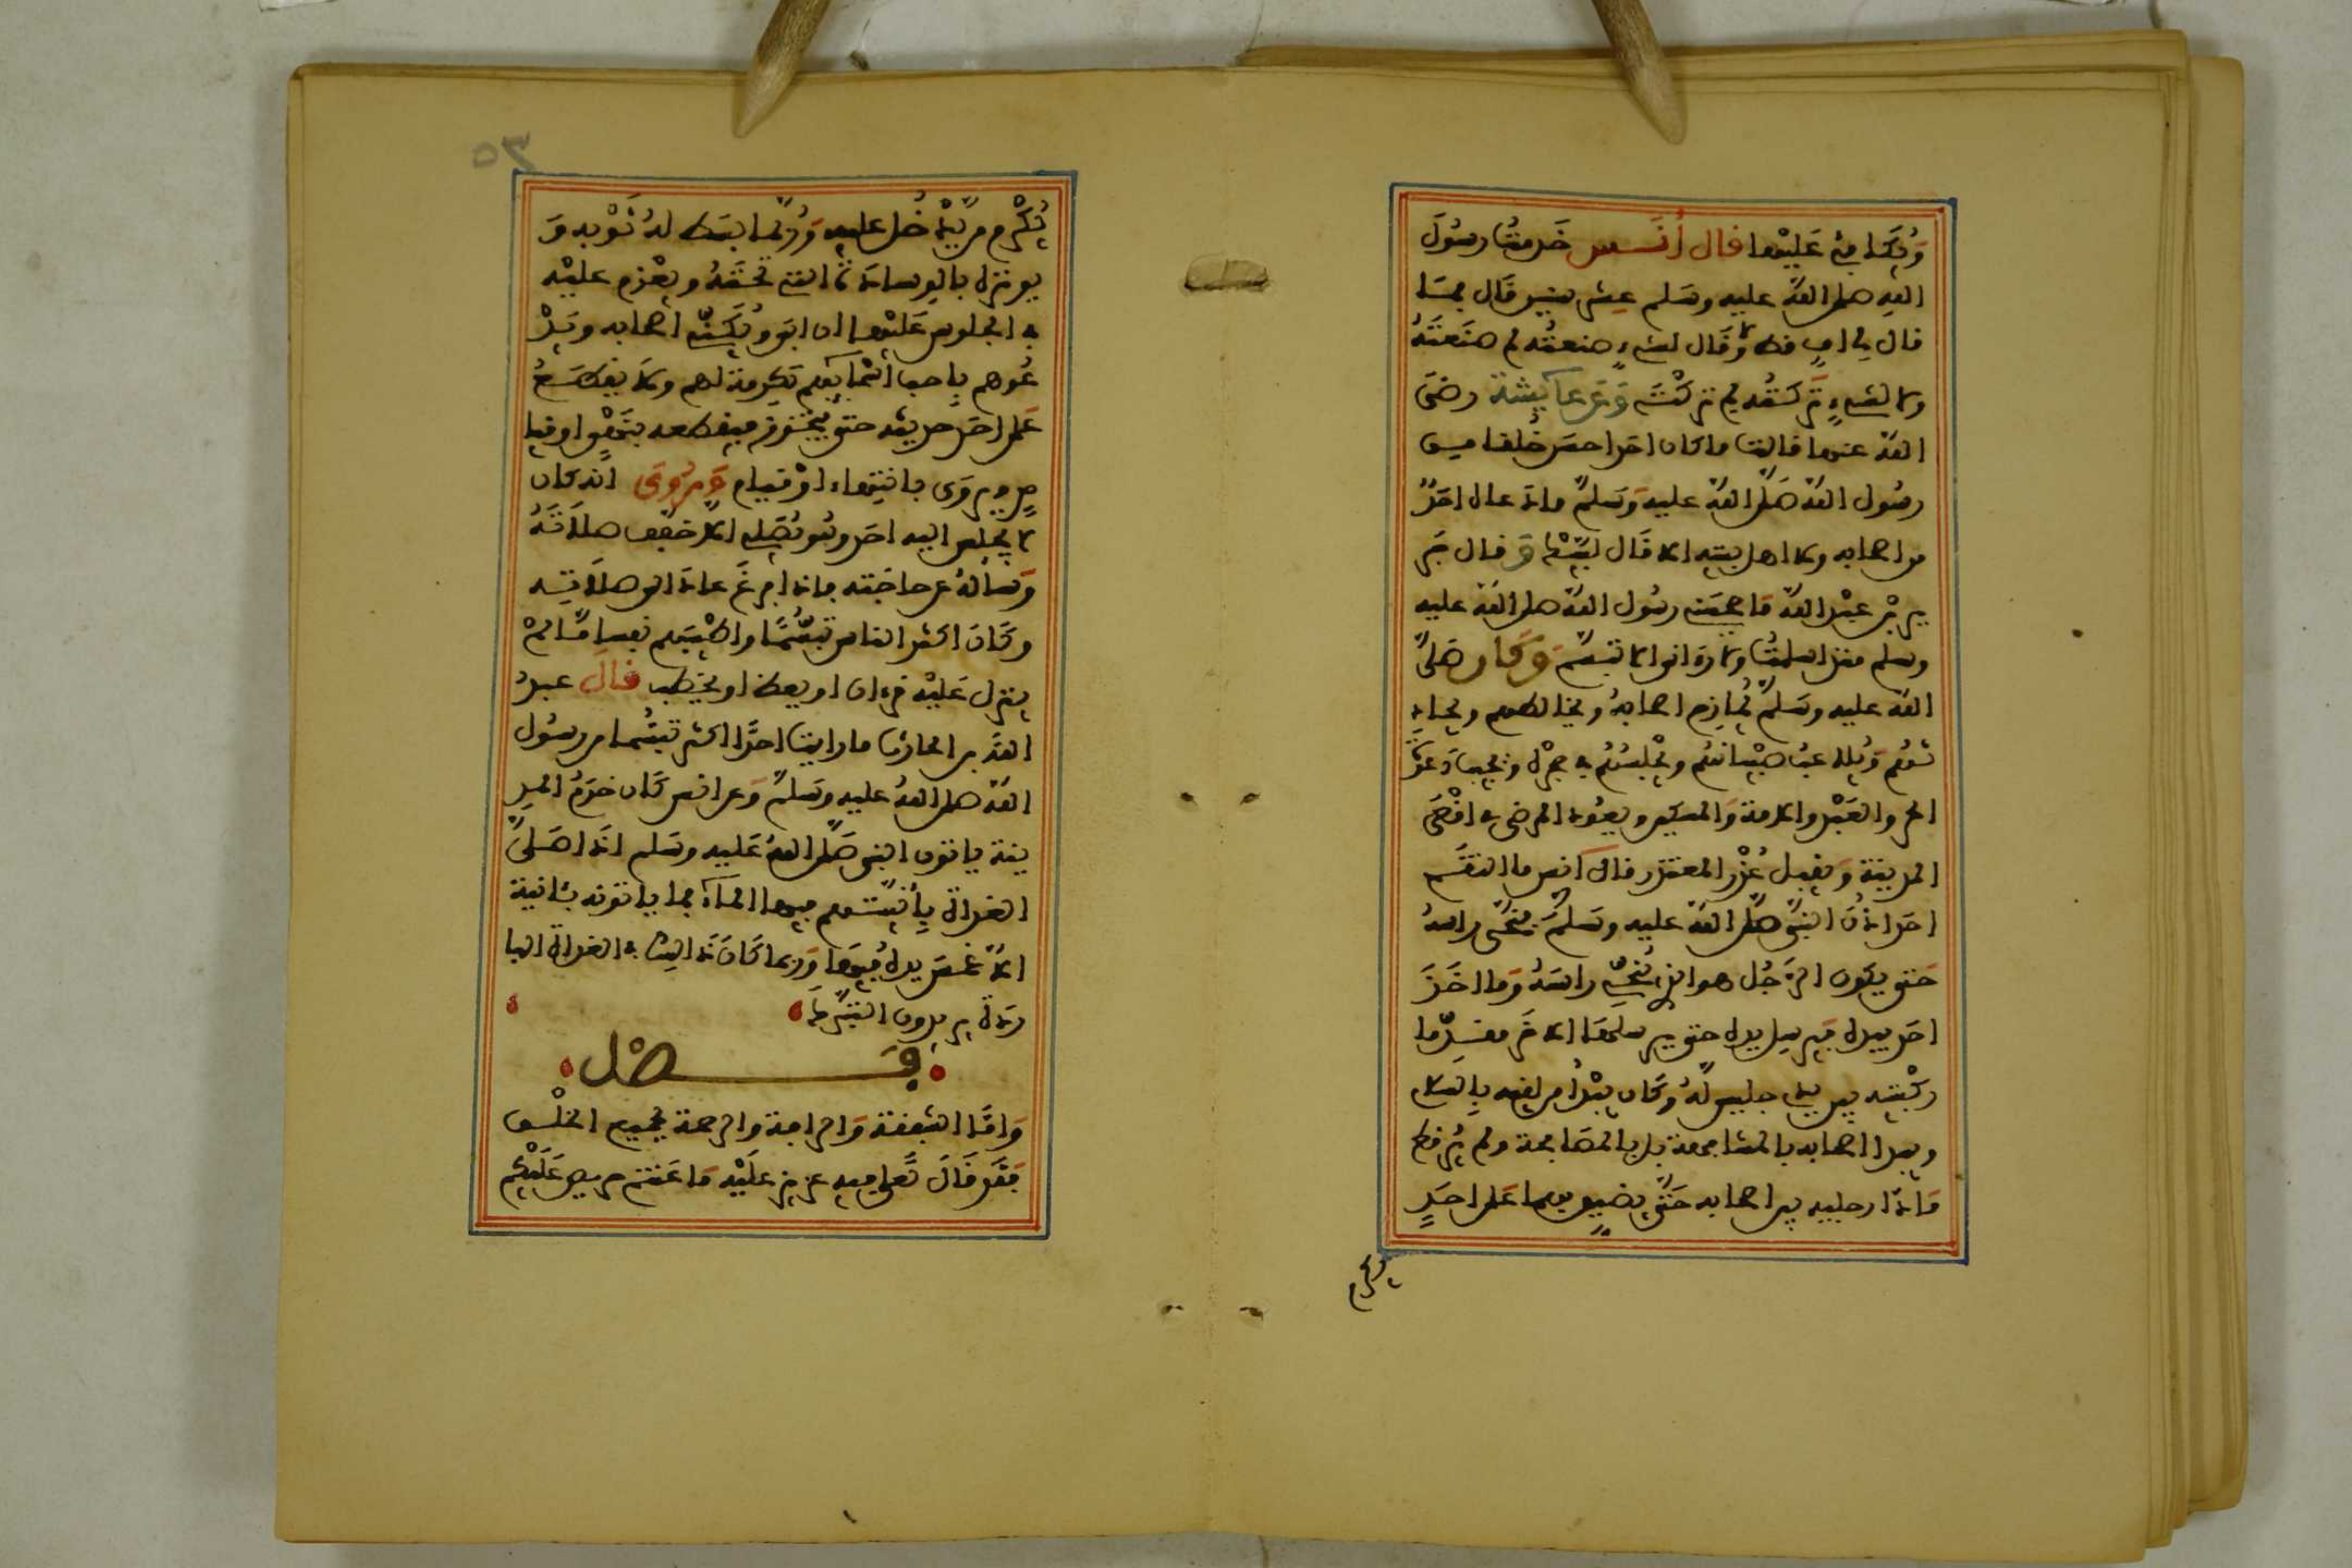 وَيُكَافِئ عَلَيْهَا قال أنس خدمت رسول
الله صلى الله عليه وسلم عشر سنين قال فما
قال لي اف قط وما قال لشيء صنعته لم صنعته
ولا لشيء تركته لم تركته وعن عائشة رضي
الله عنها قالت ما كان احد احسن خلقا من
رسول الله صلى الله عليه وسلم ما دعاه احد
من اصحابه ولا اهل بيته الا قال لبيك وقال جر
ير بن عبد الله ما حجبني رسول الله صلى الله عليه
وسلم منذ اسلمت ولا رءاني الا تبسم وكان صلى
الله عليه وسلم يمازح اصحابه ويخالطهم ويحاد
ثهم ويلاعب صبيانهم ويجلسهم في حجره ويجيب دعوة
الحر والعبد والامة والمسكين ويعود المرضى في اقصى
المدينة ويقبل عذر المعتذر قال انس ما التقم
احد اذن النبي صلى الله عليه وسلم فينحي راسه
حتى يكون الرجل هو الذي ينحي راسه وما اخذ
احد بيده فيرسل يده حتى يرسلها الاخذ مقدما
ركبتيه بين يدي جليس له وكان يبدأ من لقيه بالسلام
ويبدا اصحابه بالمصافحة ولم ير قط
مادا رجليه بين اصحابه حتى يضيق بهما على احد
يكرم
٣٥
يكرم من يدخل عليه وربما بسط له ثوبه و
يوثره بالوسادة التي تحته ويعزم عليه
في الجلوس عليها ان ابى ويكني اصحابه ويد
عوهم باحب أسمائهم تكرمة لهم ولا يقطع
على احد حديثه حتى يتجوز فيقطعه بنهي او قيا
م ويروى بانتهاء او قيام ويروى انه كان
لا يجلس اليه احد وهو يصلي الا خفف صلاته
وسأله عن حاجته فاذا فرغ عاد الى صلاته
وكان اكثر الناس تبسما واطيبهم نفسا ما لم
ينزل عليه قرءان او يعظ او يخطب قال عبد
الله بن الحارث ما رايت احدا اكثر تبسما من رسول
الله صلى الله عليه وسلم وعن انس كان خدم المد
ينة ياتون النبي صلى الله عليه وسلم اذا صلى
الغداة بأنيتهم فيها الماء فما ياتونه بئانية
الا غمس يده فيها وربما كان ذالك في الغداة البا
ردة يريدون التبرك
فصل
وأما الشفقة والرافة والرحمة لجميع الخلق
فقد قال تعالى فيه عزيز عليه ما عنتم حريص عليكم